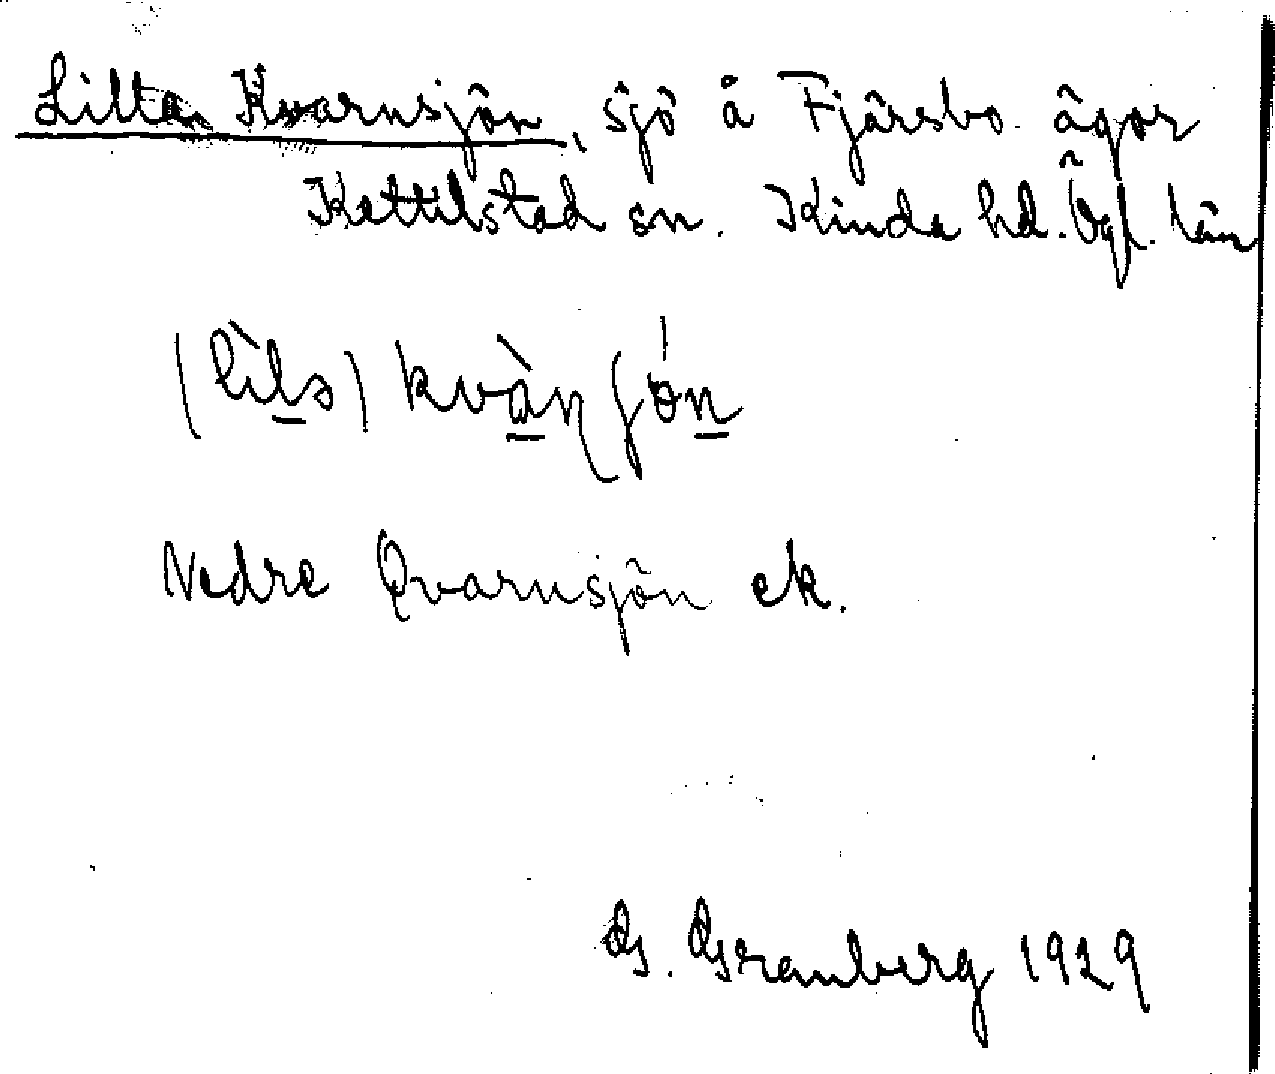 Lilla Kvarnsjön, sjö å Fjärsbo ägor
Kettilstad sn. Kinda hd. Ögl. län
(lìlə) kvànʃón
Nedre Qvarnsjön ek.
G. Granberg 1929